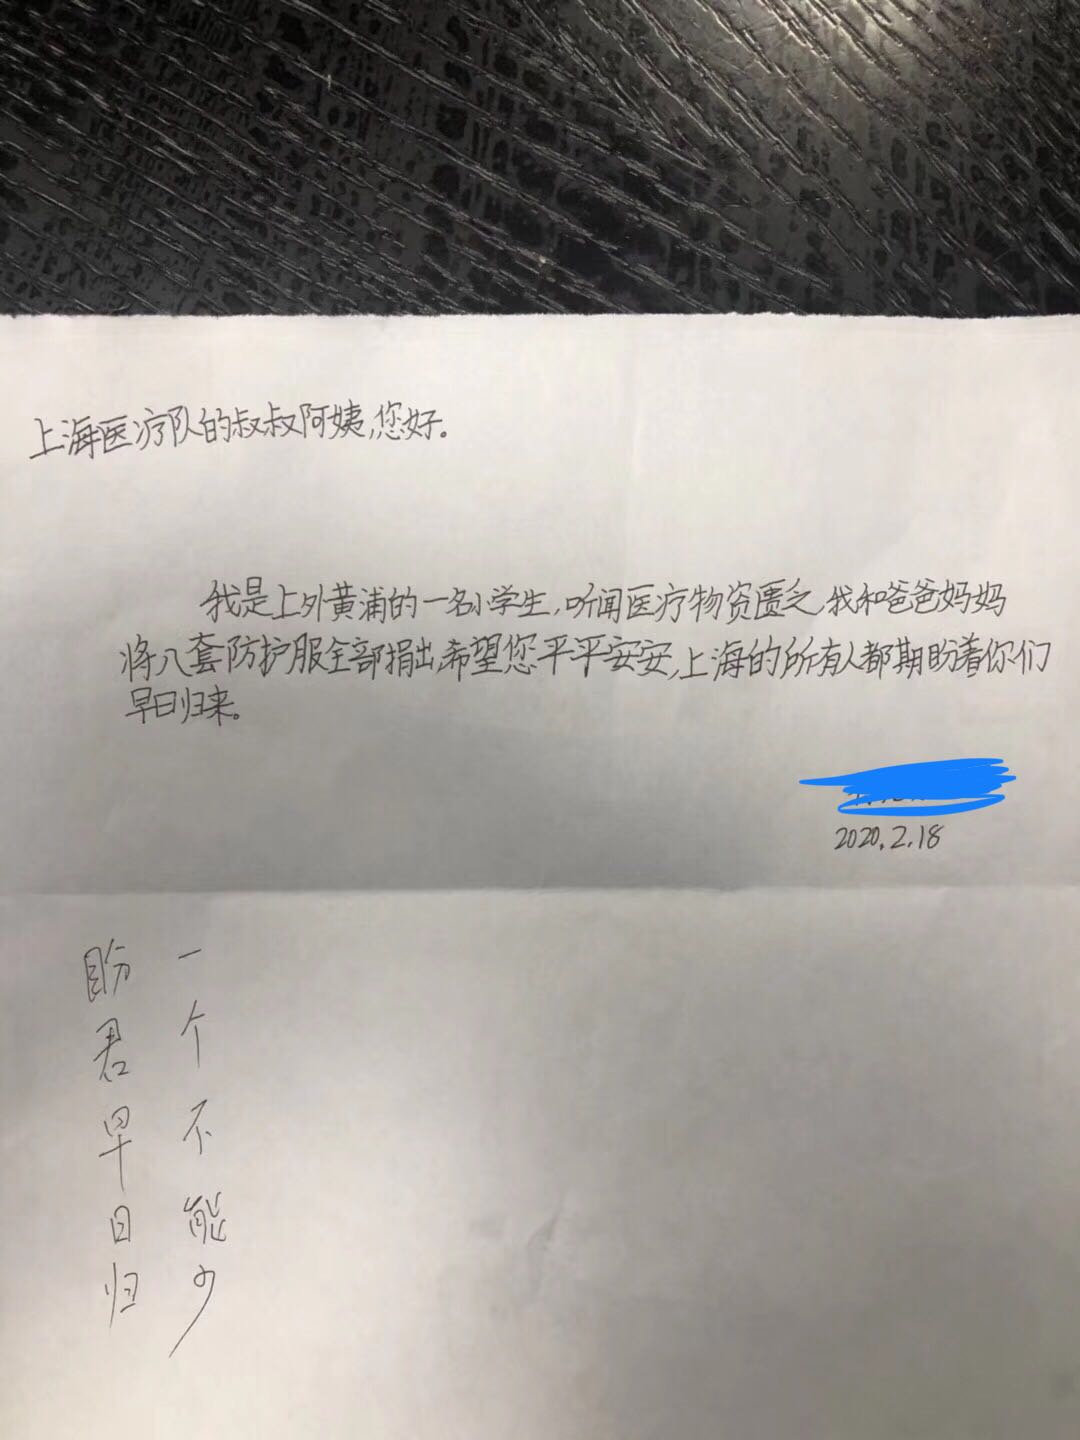 上海医疗队的叔叔阿姨,您好。
我是上外黄浦的一名小学生,听闻医疗物资匮乏,我和爸爸妈妈
将八套防护服全部捐出,希望您平平安安,上海的所有人都期盼着你们
早日归来。
2020.2.18
一个不能少
盼君早日归